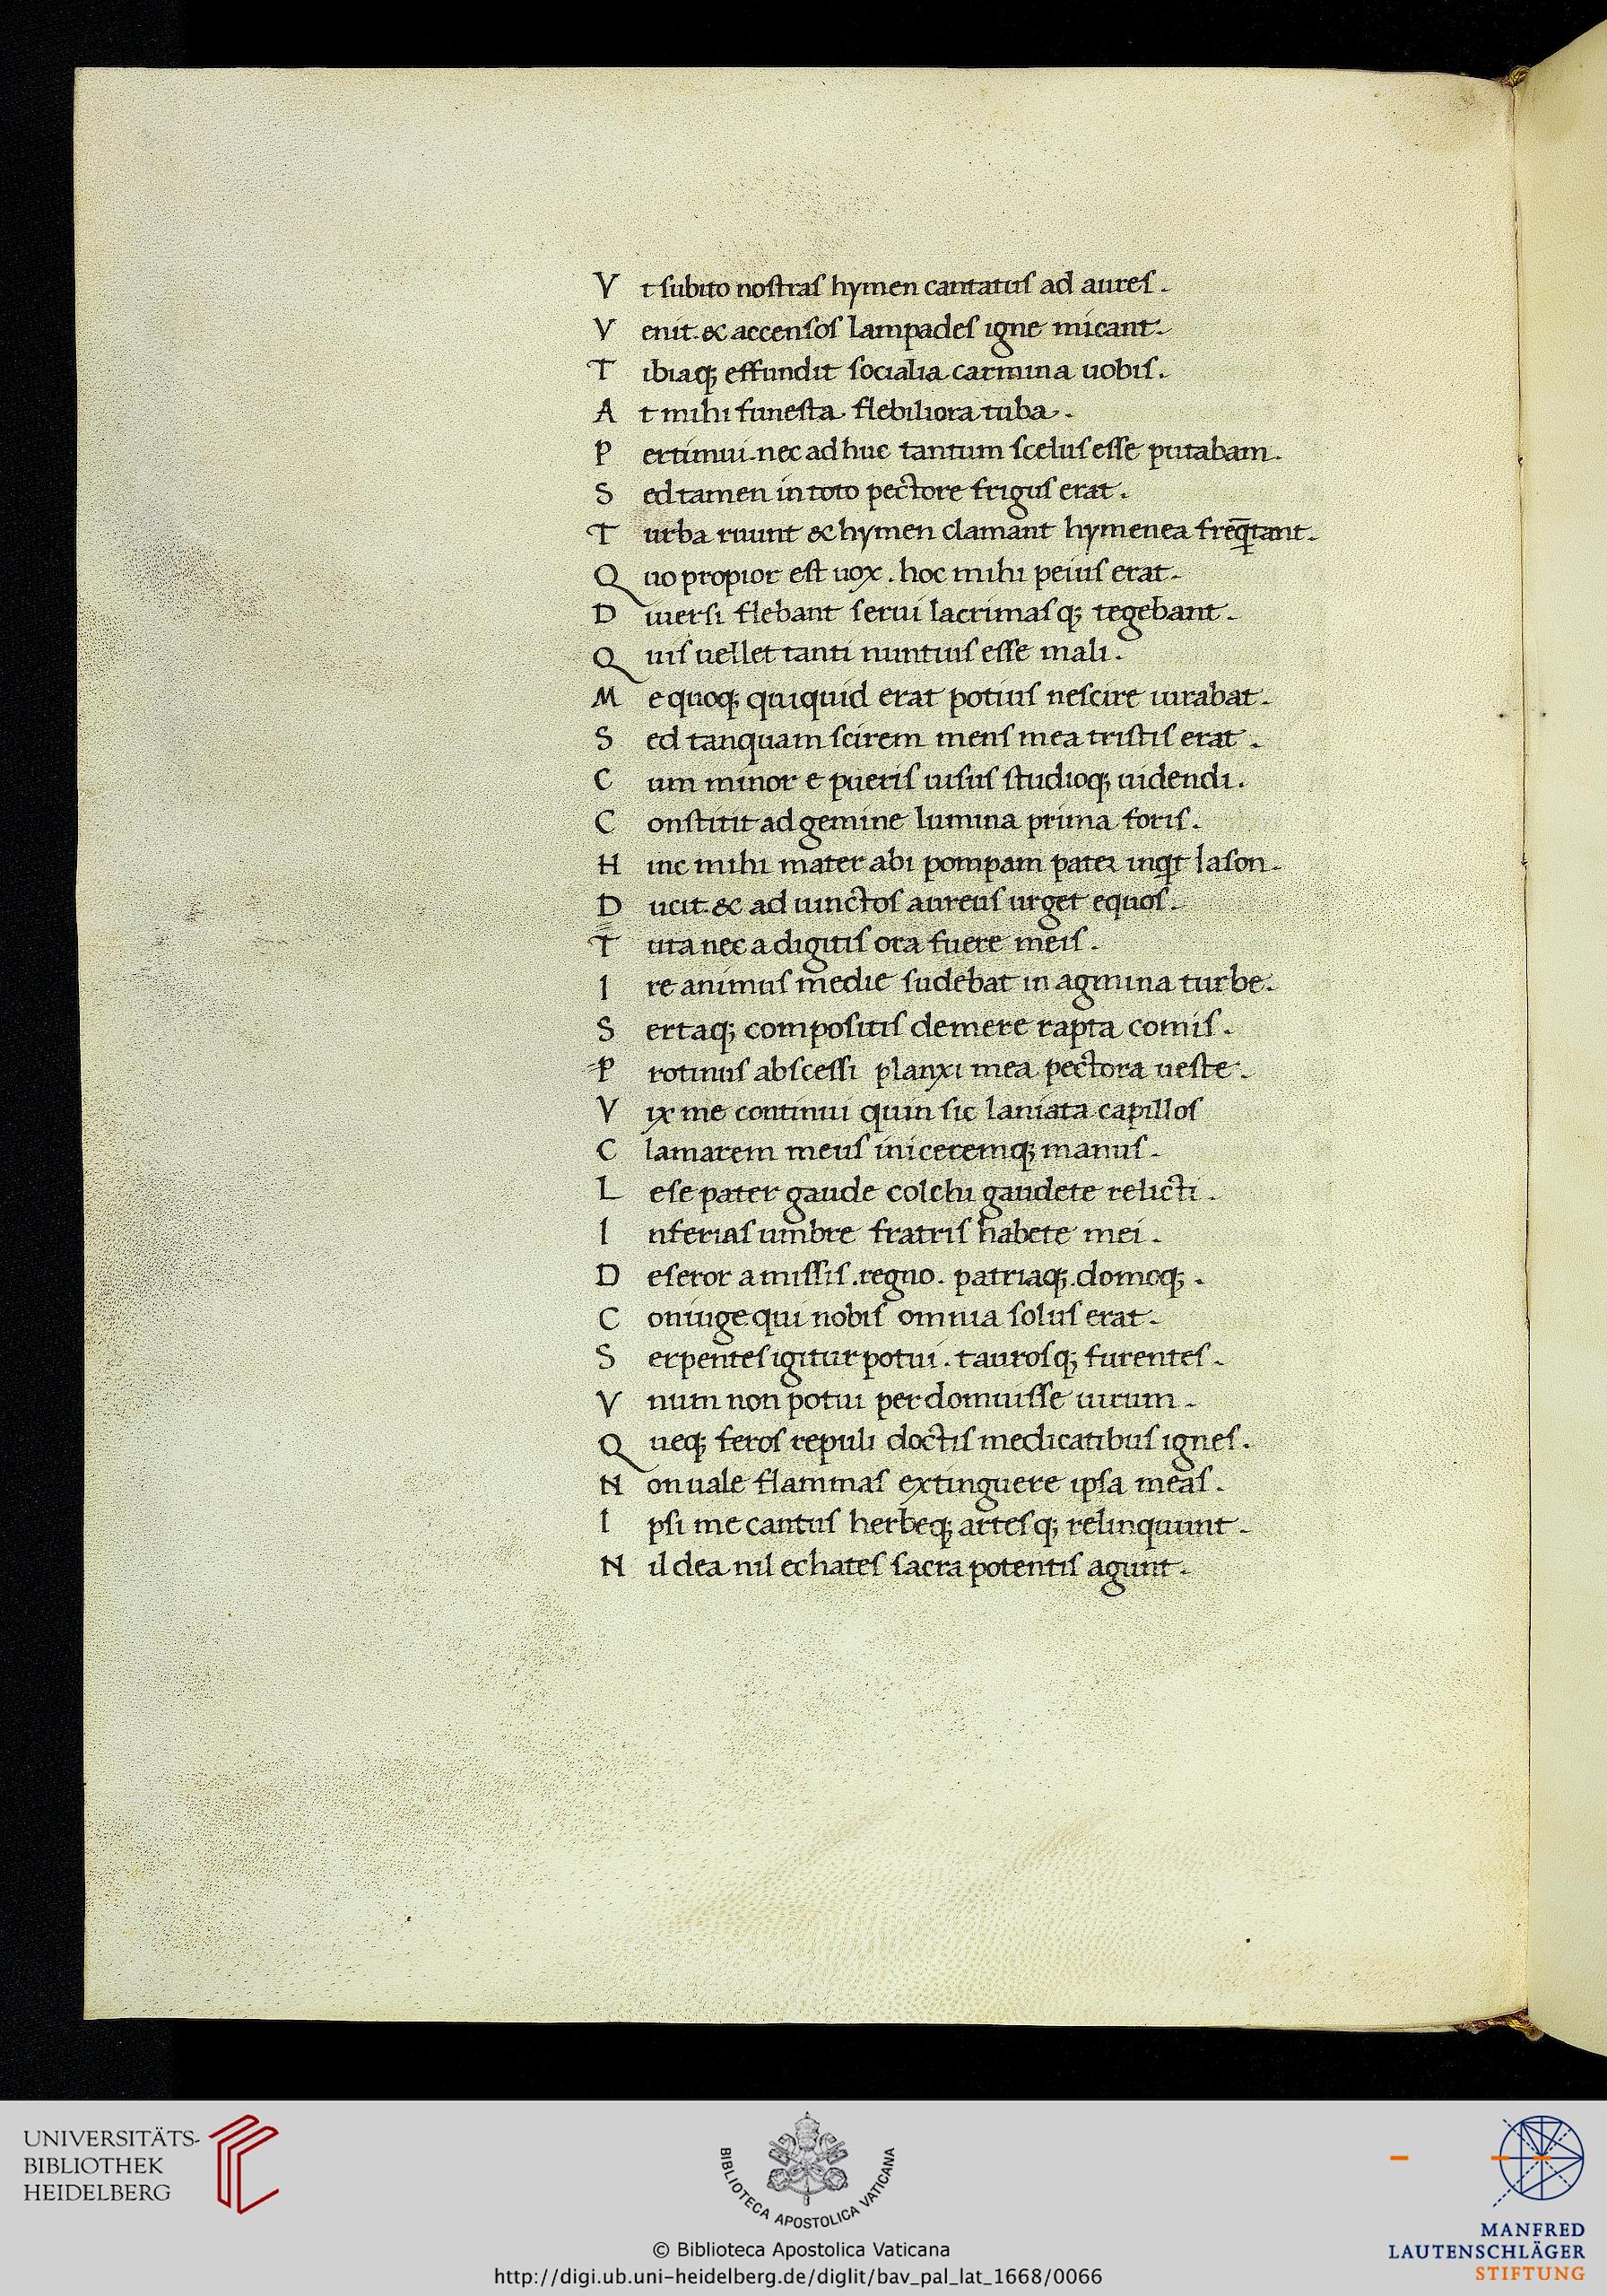 V t subito nostras hymen cantatus ad aures .
V enit . & accensos lampades igne micant .
T ibiaq; effundit socialia carmina uobis .
A t mihi funesta flebiliora tuba .
P ertimui . nec adhuc tantum scelus esse putabam .
S ed tamen in toto pectore frigus erat .
T urba ruunt & hymen clamant hymenea freq̄tant .
Q uo propior est uox . hoc mihi peius erat .
D iuersi flebant serui lacrimasq; tegebant .
Q uis uellet tanti nuntius esse mali .
M e quoq; quiquid erat potius nescire iuuabat .
S ed tanquam scirem mens mea tristis erat .
C um minor e pueris uisus studioq; uidendi .
C onstitit ad gemine lumina prima foris .
H inc mihi mater abi pompam pater inqt Iason .
D ucit . & ad iunctos aureus urget equos .
T uta nec a digitis ora fuere meis .
I re animus medie sudebat in agmina turbe .
S ertaq; compositis demere rapta comis .
P rotinus abscessi planxi mea pectora ueste .
V ix me continui quin sic laniata capillos
C lamarem meus iniceremq; manus .
L ese pater gaude colchi gaudete relicti .
I nferias umbre fratris habete mei .
D eseror amissis . regno . patriaq; . domoq; .
C oniuge qui nobis omnia solus erat .
S erpentes igitur potui . taurosq; furentes .
V num non potui perdomuisse uirum .
Q ueq; feros repuli doctis medicatibus ignes .
N on uale flammas extinguere ipsa meas .
I psi me cantus herbeq; artesq; relinquunt .
N il dea nil echates sacra potentis agunt .
UNIVERSITÄTS-
BIBLIOTHEK
HEIDELBERG
BIBLIOTECA APOSTOLICA VATICANA
© Biblioteca Apostolica Vaticana
http://digi.ub.uni-heidelberg.de/diglit/bav_pal_lat_1668/0066
MANFRED
LAUTENSCHLÄGER
STIFTUNG